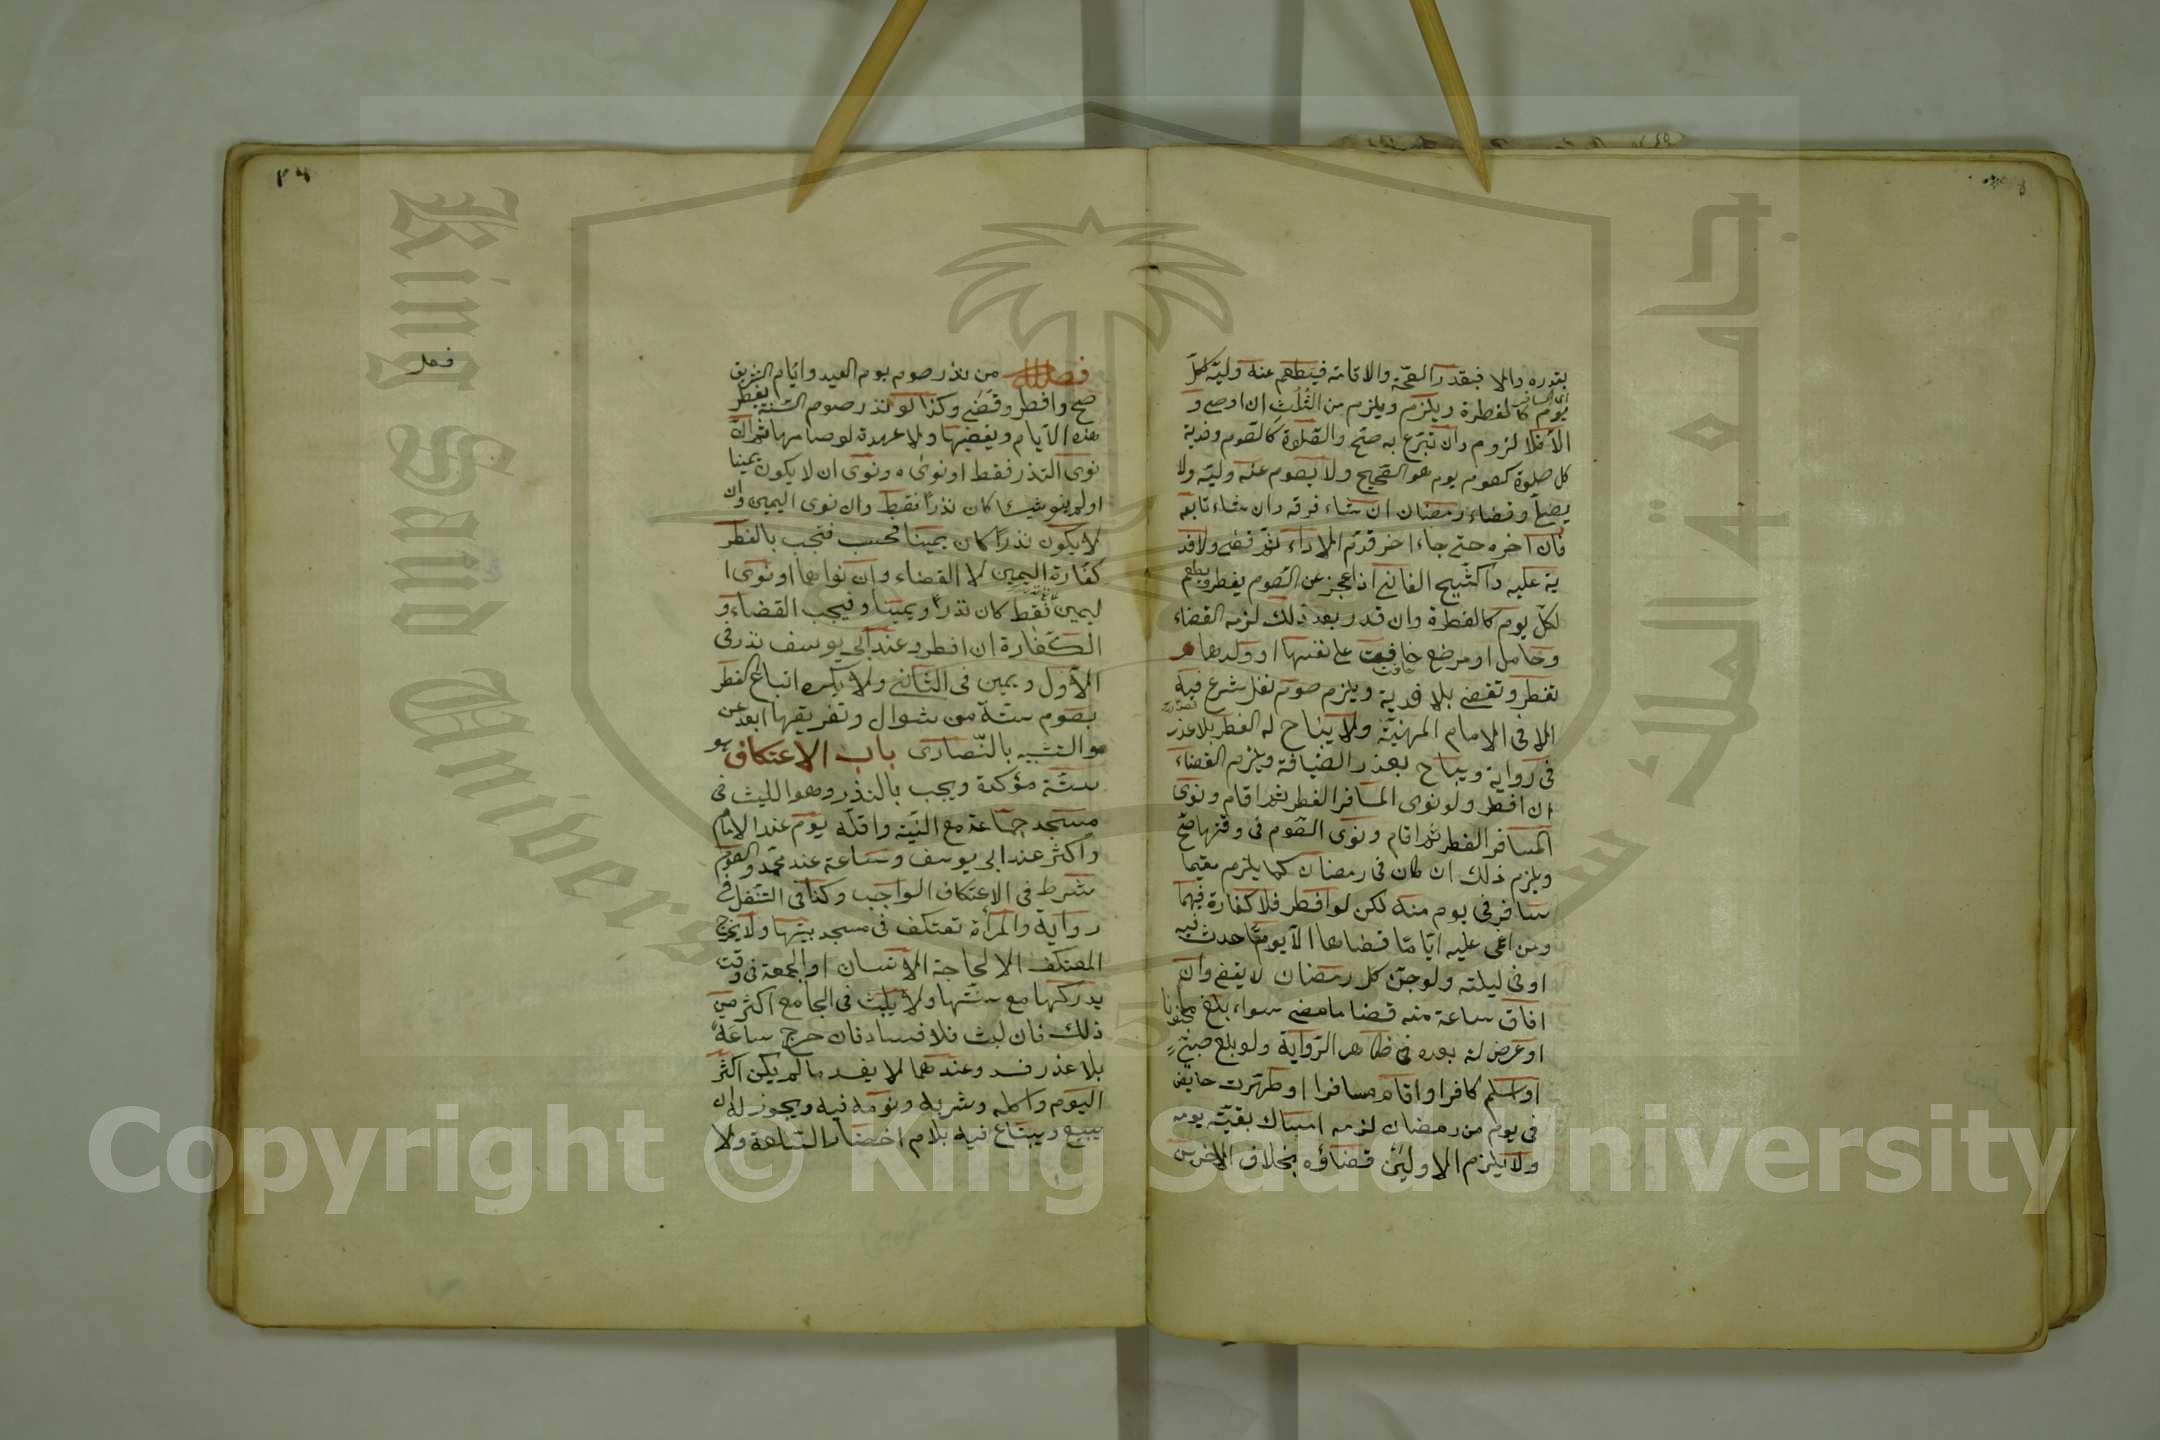 بقدره والا فبقدر الصحة والاقامة فيطعم عنه وليه لكل
يوم كالفطرة ويلزم من الثلث ان اوصى و
الا فلا لزوم وان تبرع به صح والصلاة كالصوم وفدية
كل صلوة كصوم يوم هو الصحيح ولا يصوم عنه وليه ولا
يصلي وقضاء رمضان ان شاء فرقه وان شاء تابعه
فان اخره حتى جاء اخر قدم الاداء ثم قضى ولا فد
ية عليه والشيخ الفاني اذا عجز عن الصوم يفطر ويطعم
لكل يوم كالفطرة وان قدر بعد ذلك لزمه القضاء
وحامل او مرضع خافت على نفسها او ولدها
خافت
تفطر وتقضى بلا فدية ويلزم صوم نفل شرع فيه
الا فى الايام المنهية ولا يباح له الفطر بلا عذر
فى رواية ويباح بعذر الضيافة ويلزم القضاء
ان افطر ولو نوى المسافر الفطر ثم اقام ونوى
المسافر الفطر ثم اقام ونوى الصوم فى وقتها صح
ويلزم ذلك ان كان فى رمضان كما يلزم مقيما
سافر فى يوم منه لكن لو افطر فلا كفارة فيهما
ومن اغمى عليه اياما قضاها الا يوما حدث فيه
او فى ليلته ولو جن كل رمضان لا يقضى وان
افاق ساعة منه قضا ما مضى سواء بلغ مجنونا
او عرض له بعده فى ظاهر الرواية ولو بلغ صبي
او اسلم كافر او اقام مسافر او طهرت حايض
فى يوم من رمضان لزمه امساك بقية يومه
ولا يلزم الاولين قضاؤه بخلاف الاخرين
٤٦
فصل
فصل من نذر صوم يوم العيد وايام التشريق
صح وافطر وقضى وكذا لو نذر صوم السنة يفطر
هذه الايام ويقضيها ولا عهدة لو صامها ثم ان
نوى النذر فقط او نواه ونوى ان لا يكون يمينا
او لم ينو شيئا كان نذرا فقط وان نوى اليمين وان
لا يكون نذرا كان يمينا فحسب فتجب بالفطر
كفارة اليمين لا القضاء وان نواهما او نوى ا
ليمين فقط كان نذرا ويمينا فيجب القضاء و
الكفارة ان افطر وعند ابي يوسف نذر فى
الاول ويمين فى الثاني ولا يكره اتباع الفطر
بصوم ستة من شوال وتفريقها ابعد عن
والتشبيه بالنصارى باب الاعتكاف هو
سنة مؤكدة ويجب بالنذر وهو اللبث فى
مسجد جماعة مع النية واقله يوم عند الامام
واكثر عند ابي يوسف وساعة عند محمد والصوم
شرط فى الاعتكاف الواجب وكذا فى التنفل فى
رواية والمرأة تعتكف فى مسجد بيتها ولا يخرج
المعتكف الا لحاجة الانسان او الجمعة فى وقت
يدركها مع سنتها ولا يلبث فى الجامع اكثر من
ذلك فان لبث فلا فساد فان خرج ساعة
بلا عذر فسد وعندهما لا يفسد ما لم يكن اكثر
اليوم واكله وشربه ونومه فيه ويجوز له ان
يبيع ويبتاع فيه بلا احضار السلعة ولا
King Saud University
جامعة الملك سعود
Copyright © King Saud University